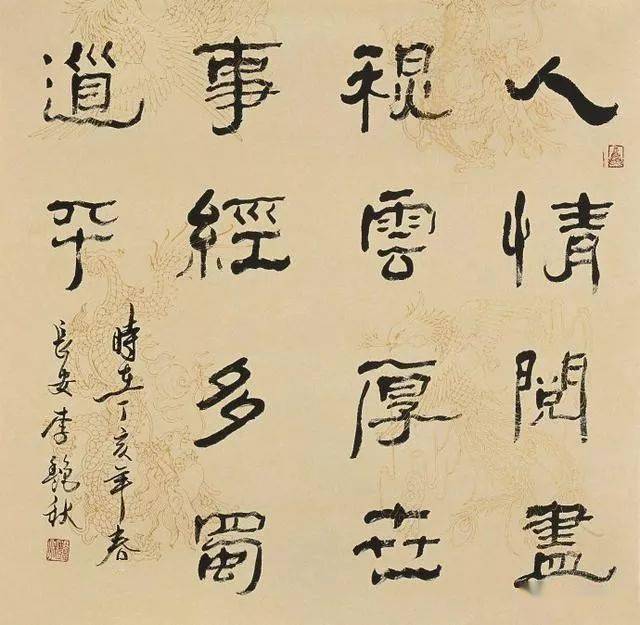 人情閱盡
雲厚世
事經多蜀
道平
時在丁亥年春
長安李艷秋